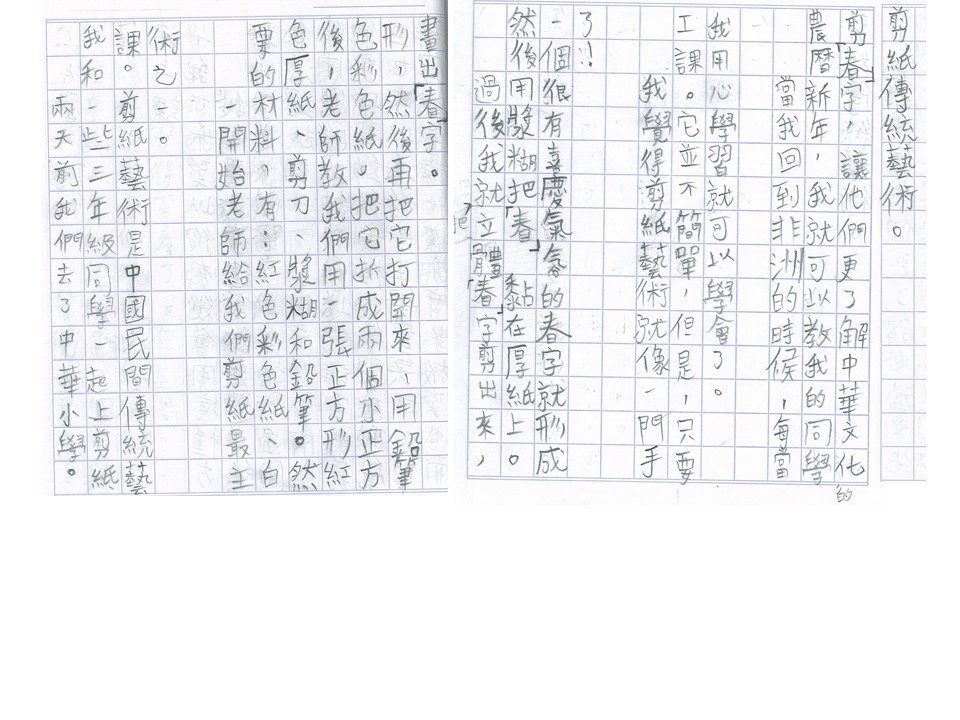 兩天前我們去了中華小學。
我和一些三年級同學一起上剪紙
課。剪紙藝術是中國民間傳統藝
術之一。
一開始,老師給我們剪紙最主
要的材料,有:紅色彩色紙、白
色厚紙、剪刀、漿糊和鉛筆。然
後,老師教我們用一張正方形紅
色彩色紙。把它折成兩個小正方
形,然後再把它打開來,用鉛筆
畫出「春」字。
過後我就把立體「春」字剪出來,
然後用漿糊把「春」黏在厚紙上。
一個很有喜慶氣氛的春字就形成
了!!
我覺得剪紙藝術就像一門手
工課。它並不簡單,但是,只要
我用心學習就可以學會了。
當我回到非洲的時候,每當
農曆新年,我就可以教我的同學
剪「春」字,讓他們更了解中華文化的
剪紙傳統藝術。